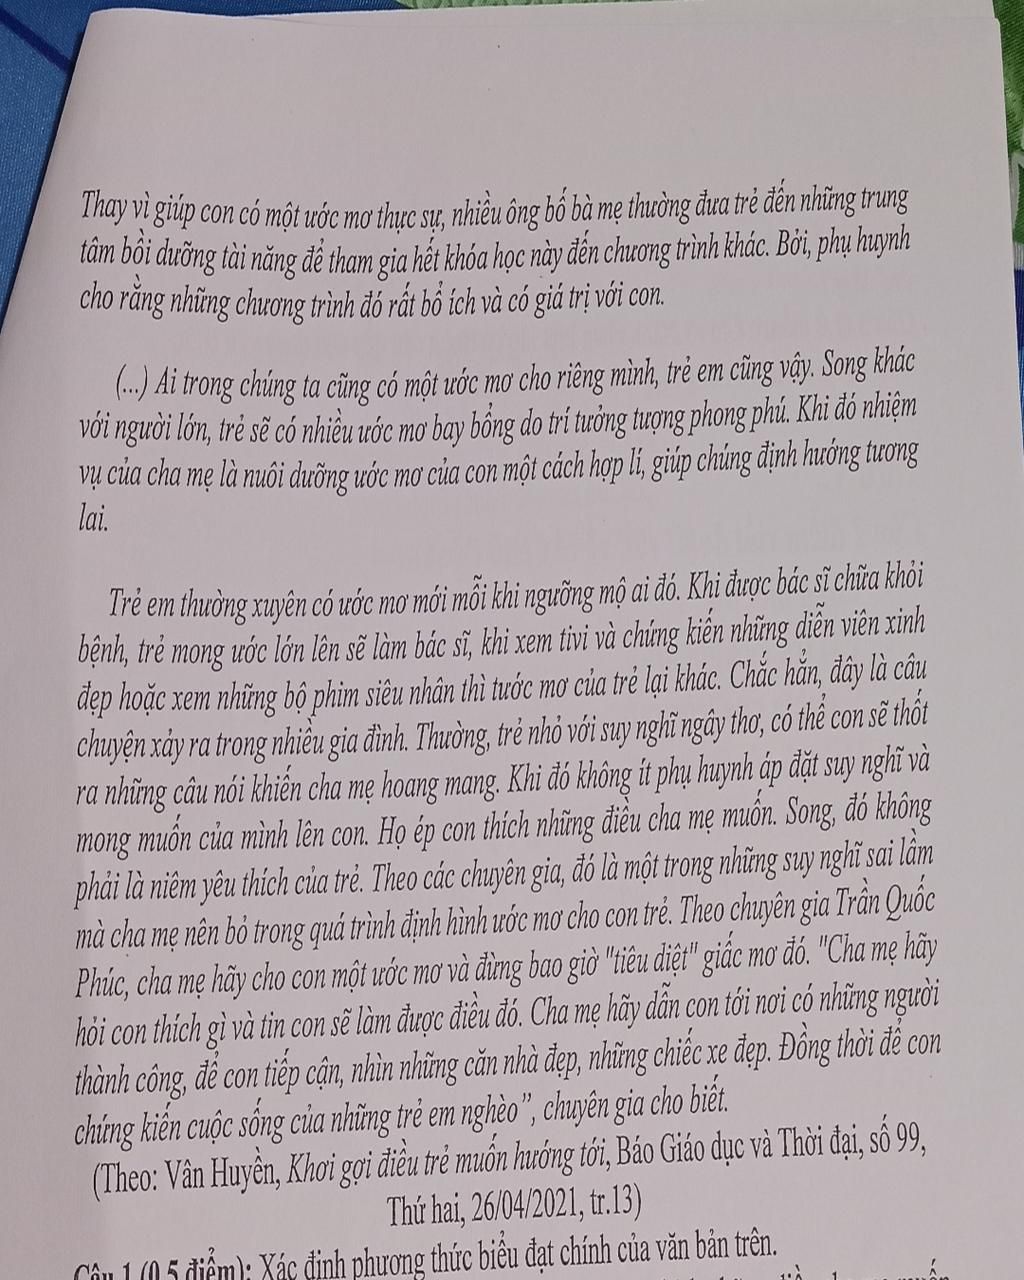 Thay vì giúp con có một ước mơ thực sự, nhiều ông bố bà mẹ thường đưa trẻ đến những trung
tâm bồi dưỡng tài năng để tham gia hết khóa học này đến chương trình khác. Bởi, phụ huynh
cho rằng những chương trình đó rất bổ ích và có giá trị với con.
(...) Ai trong chúng ta cũng có một ước mơ cho riêng mình, trẻ em cũng vậy. Song khác
với người lớn, trẻ sẽ có nhiều ước mơ bay bổng do trí tưởng tượng phong phú. Khi đó nhiệm
vụ của cha mẹ là nuôi dưỡng ước mơ của con một cách hợp lí, giúp chúng định hướng tương
lai.
Trẻ em thường xuyên có ước mơ mới mỗi khi ngưỡng mộ ai đó. Khi được bác sĩ chữa khỏi
bệnh, trẻ mong ước lớn lên sẽ làm bác sĩ, khi xem tivi và chứng kiến những diễn viên xinh
đẹp hoặc xem những bộ phim siêu nhân thì tước mơ của trẻ lại khác. Chắc hẳn, đây là câu
chuyện xảy ra trong nhiều gia đình. Thường, trẻ nhỏ với suy nghĩ ngây thơ, có thể con sẽ thốt
ra những câu nói khiến cha mẹ hoang mang. Khi đó không ít phụ huynh áp đặt suy nghĩ và
mong muốn của mình lên con. Họ ép con thích những điều cha mẹ muốn. Song, đó không
phải là niêm yêu thích của trẻ. Theo các chuyên gia, đó là một trong những suy nghĩ sai lầm
mà cha mẹ nên bỏ trong quá trình định hình ước mơ cho con trẻ. Theo chuyên gia Trần Quốc
Phúc, cha mẹ hãy cho con một ước mơ và đừng bao giờ "tiêu diệt" giấc mơ đó. "Cha mẹ hãy
hỏi con thích gì và tin con sẽ làm được điều đó. Cha mẹ hãy dẫn con tới nơi có những người
thành công, để con tiếp cận, nhìn những căn nhà đẹp, những chiếc xe đẹp. Đồng thời để con
chứng kiến cuộc sống của những trẻ em nghèo”, chuyên gia cho biết.
(Theo: Vân Huyền, Khơi gợi điều trẻ muốn hướng tới, Báo Giáo dục và Thời đại, số 99,
Thứ hai, 26/04/2021, tr.13)
Câu 1 (0,5 điểm): Xác định phương thức biểu đạt chính của văn bản trên.